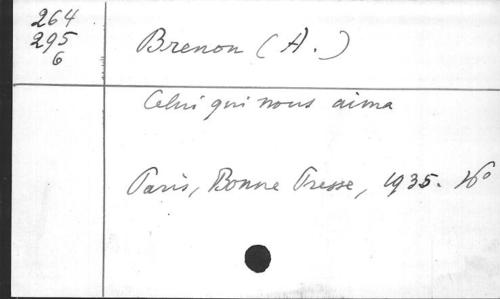 264
295
6
Brenon (A.)
Celui qui nous aima
Paris, Bonne Presse, 1935. 16°